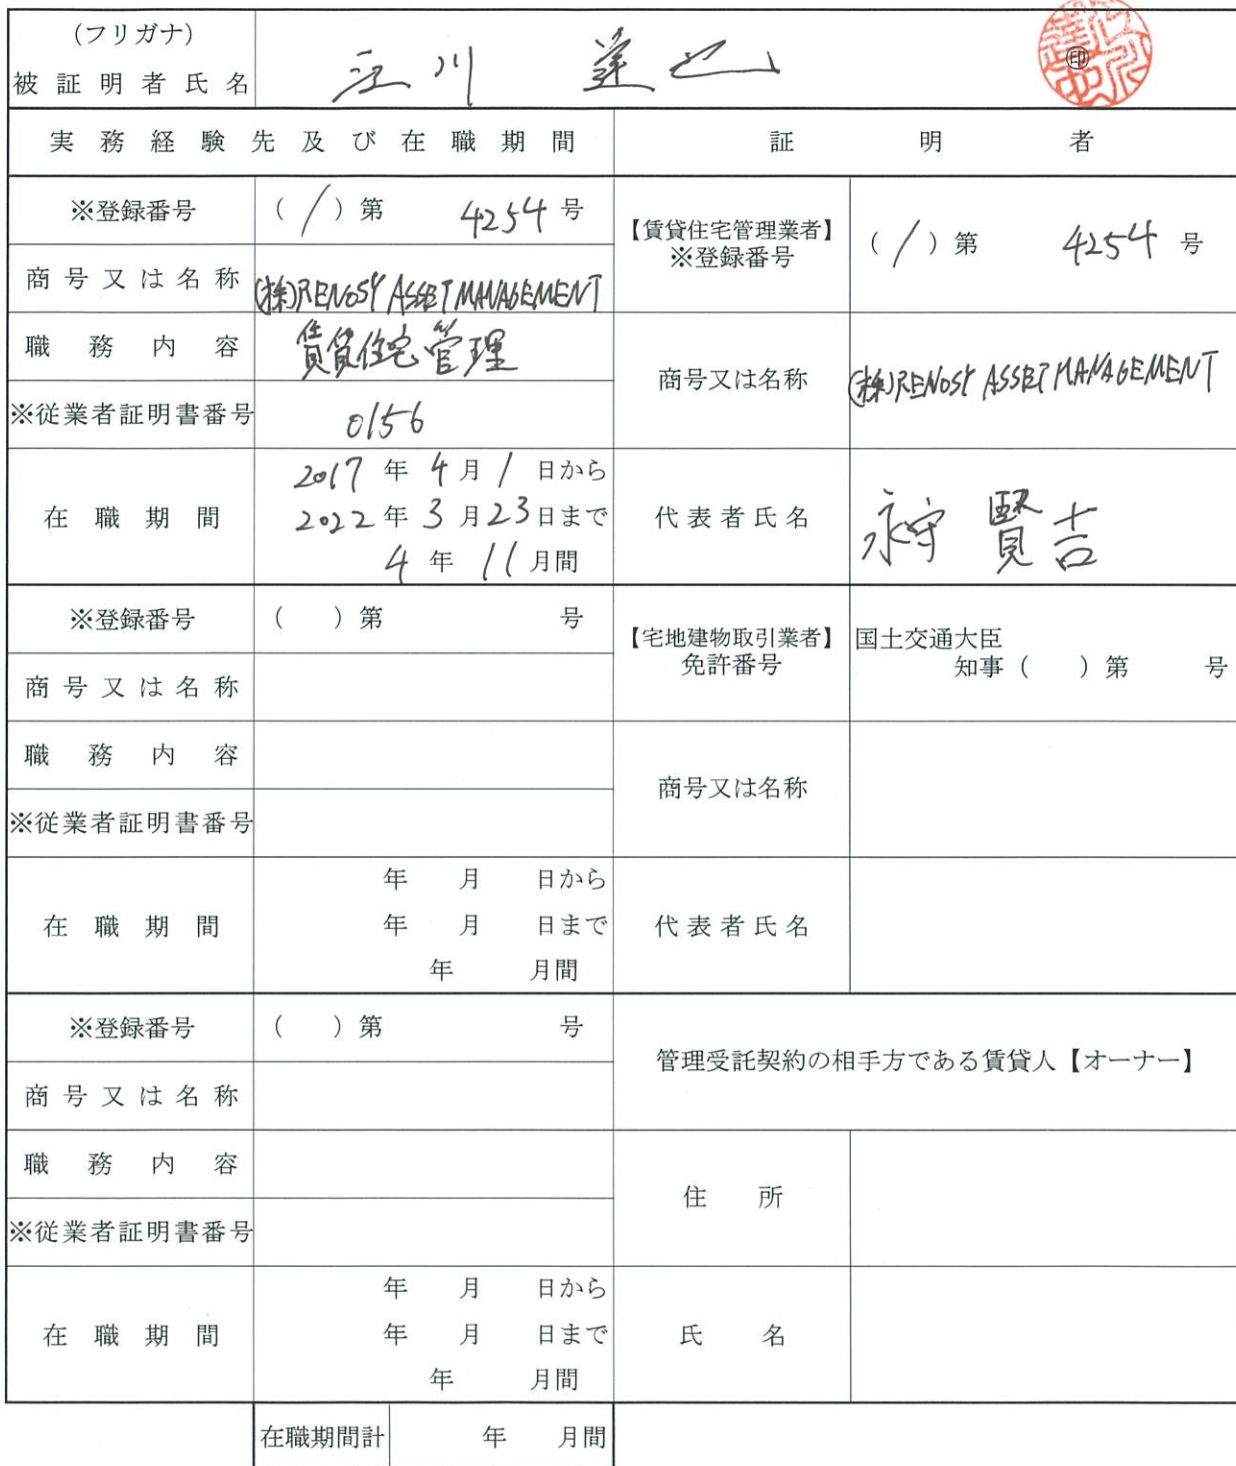 (フリガナ)
被証明者氏名 江川 達也 ㊞
実務経験先及び在職期間 証明者
※登録番号 (1)第 4254 号 【賃貸住宅管理業者】※登録番号 (1)第 4254 号
商号又は名称 (株)RENOSY ASSET MANAGEMENT
職務内容 賃貸住宅管理 商号又は名称 (株)RENOSY ASSET MANAGEMENT
※従業者証明書番号 0156
在職期間 2017 年 4 月 1 日から
2022 年 3 月 23 日まで
4 年 11 月間
代表者氏名 永守 賢吉
※登録番号 ( )第 号 【宅地建物取引業者】免許番号 国土交通大臣
知事( )第 号
商号又は名称
職務内容 商号又は名称
※従業者証明書番号
在職期間 年 月 日から
年 月 日まで
年 月間
代表者氏名
※登録番号 ( )第 号 管理受託契約の相手方である賃貸人【オーナー】
商号又は名称
職務内容 住所
※従業者証明書番号
在職期間 年 月 日から
年 月 日まで
年 月間
氏名
在職期間計 年 月間